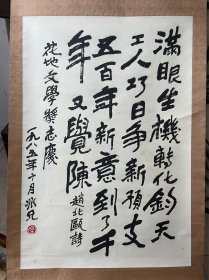 滿眼生機轉化鈞天
工人巧日争新預支
五百年新意到了千
年又覺陳 趙北甌詩
花地文學獎志慶
一九八五年十月 兆兄